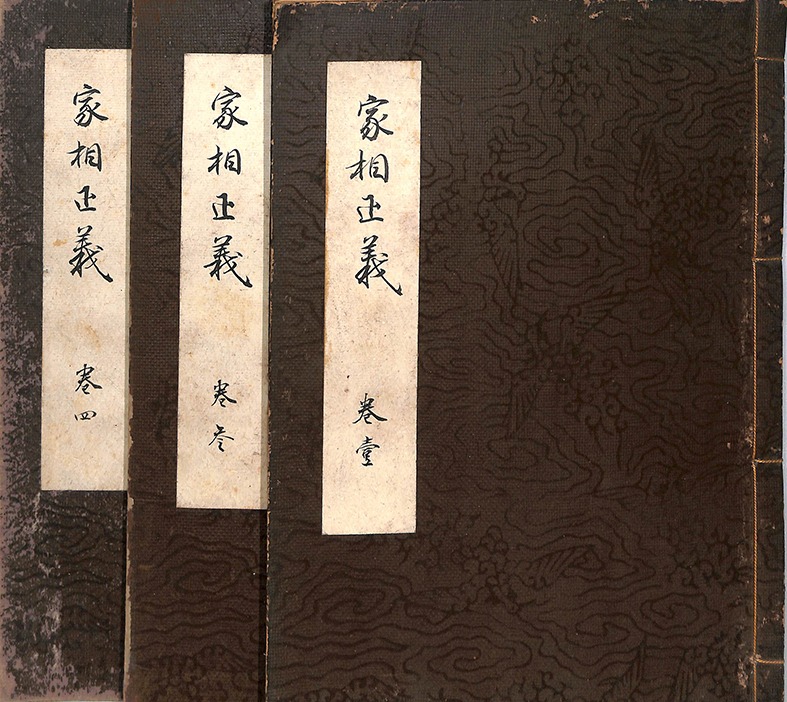 家相正義 卷壹
家相正義 卷参
家相正義 卷四